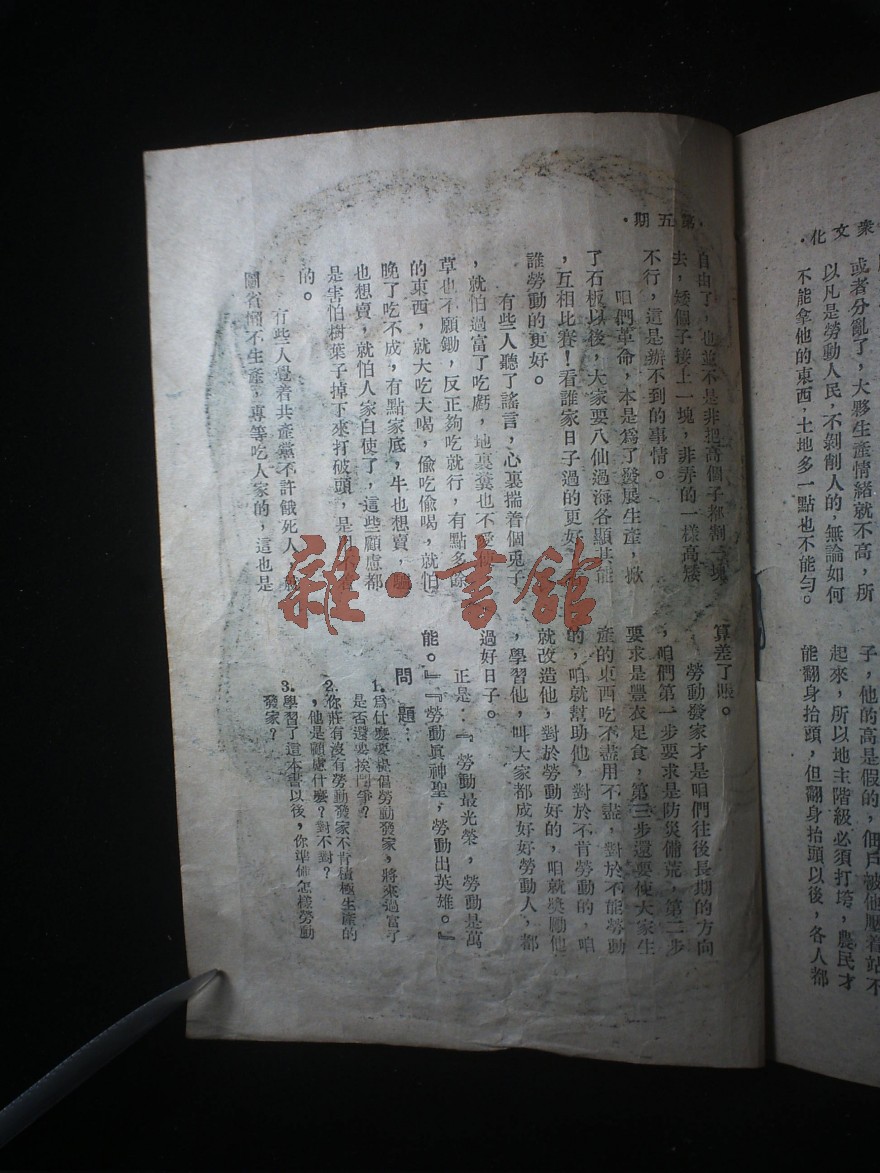 衆文化·
或者分亂了，大夥生產情緒就不高，所
以凡是勞動人民，不剝削人的，無論如何
不能拿他的東西，土地多一點也不能勻。
子，他的高是假的，佃戶被他壓着站不
起來，所以地主階級必須打垮，農民才
能翻身抬頭，但翻身抬頭以後，各人都
·第五期·
自由了，也並不是非把高個子都割一塊
去，矮個子接上一塊，非弄的一樣高矮
不行，這是辦不到的事情。
咱們革命，本是爲了發展生產，掀
了石板以後，大家要八仙過海各顯其能
，互相比賽！看誰家日子過的更好，
誰勞動的更好。
有些人聽了謠言，心裏揣着個兎子
，就怕過富了吃虧，地裏糞也不
草也不願鋤，反正夠吃就行，有點多餘
的東西，就大吃大喝，偷吃偷喝，就怕
晚了吃不成，有點家底，牛也想賣，
也想賣，就怕人家白使了，這些顧慮都
是害怕樹葉子掉下來打破頭，是
的。
有些人覺着共產黨不許餓死人，就
鬭省懶不生產，專等吃人家的，這也是
算差了賬。
勞動發家才是咱們往後長期的方向
，咱們第一步要求是防災備荒，第二步
要求是豐衣足食，第三步還要使大家生
產的東西吃不盡用不盡，對於不能勞動
的，咱就幫助他，對於不肯勞動的，咱
就改造他，對於勞動好的，咱就獎勵他
，學習他，叫大家都成好好勞動人，都
過好日子。
正是：『勞動最光榮，勞動是萬
能。』『勞動眞神聖，勞動出英雄。』
問題：
1.爲什麼要提倡勞動發家，將來過富了
是否還要挨鬥爭？
2.你莊有沒有勞動發家不肯積極生產的
，他是顧慮什麼？對不對？
3.學習了這本書以後，你準備怎樣勞動
發家？
雜·書館